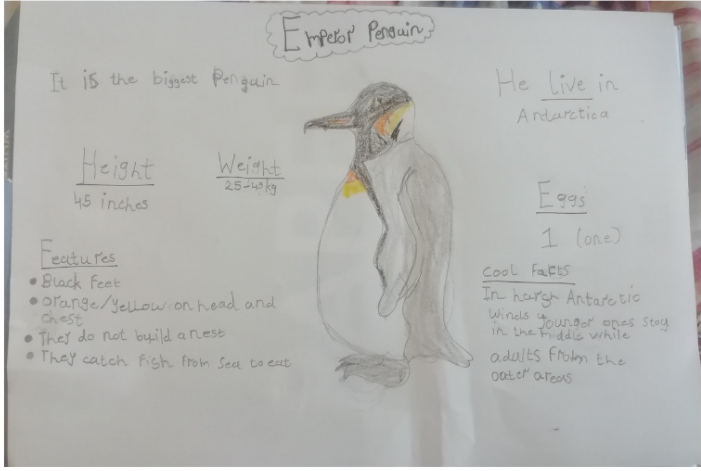 Emperor Penguin
It is the biggest Penguin
He live in
Antarctica
Height
45 inches
Weight
25-45kg
Eggs
1 (one)
Features
Black Feet
orange/yellow on head and
chest
They do not build a nest
They catch fish from sea to eat
cool Facts
In harsh Antarctic
winds younger ones stay
in the middle while
adults from the
outer areas